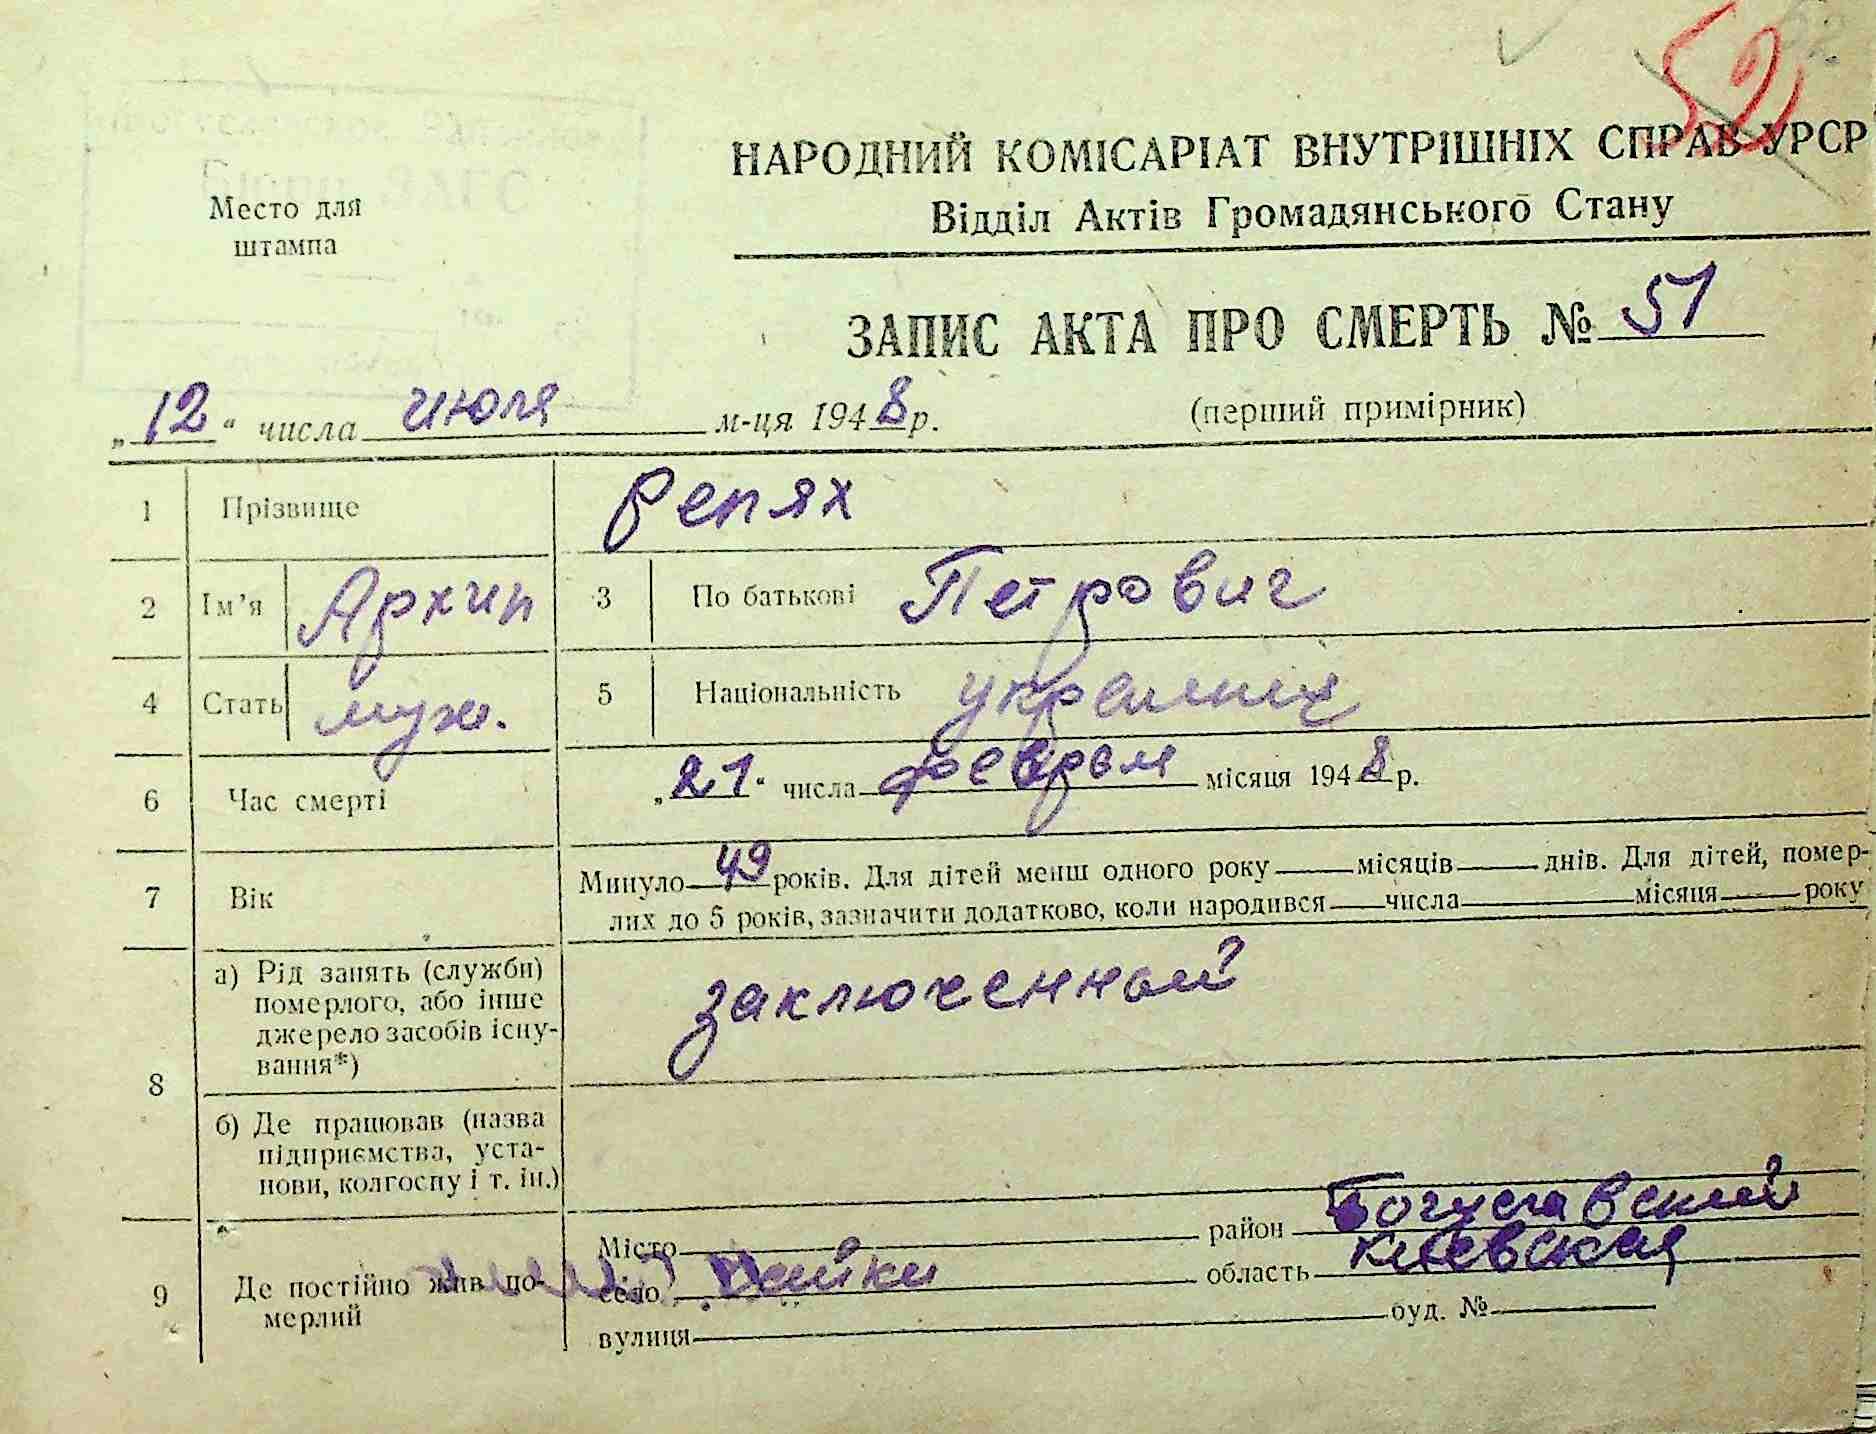 52
НАРОДНИЙ КОМІСАРІАТ ВНУТРІШНІХ СПРАВ УРСР
Відділ Актів Громадянського Стану
Место для
штампа
ЗАПИС АКТА ПРО СМЕРТЬ № 51
„12“ числа июля м-ця 1948 р.
(перший примірник)
1 Прізвище Репях
2 Ім’я Архип 3 По батькові Петрович
4 Стать муж. 5 Національність
6 Час смерті „21“ числа февраля місяця 1948 р.
7 Вік Минуло 49 років. Для дітей менш одного року місяців днів. Для дітей, помер-
лих до 5 років, зазначити додатково, коли народився числа місяця року
8 а) Рід занять (служби)
померлого, або інше
джерело засобів існу-
вання*)
заключенный
б) Де працював (назва
підприємства, уста-
нови, колгоспу і т. ін.)
9 Де постійно жив по-
мерлий
Місто район Богуславский
село область Киевская
вулиця буд. №